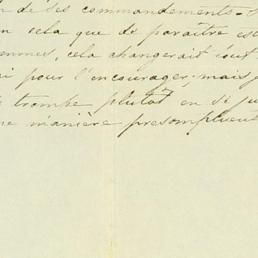 de ses commandements
cela que de paraître
cela changerait tout
pour l'encourager; mais
trompe plutôt en
manière présomptueus